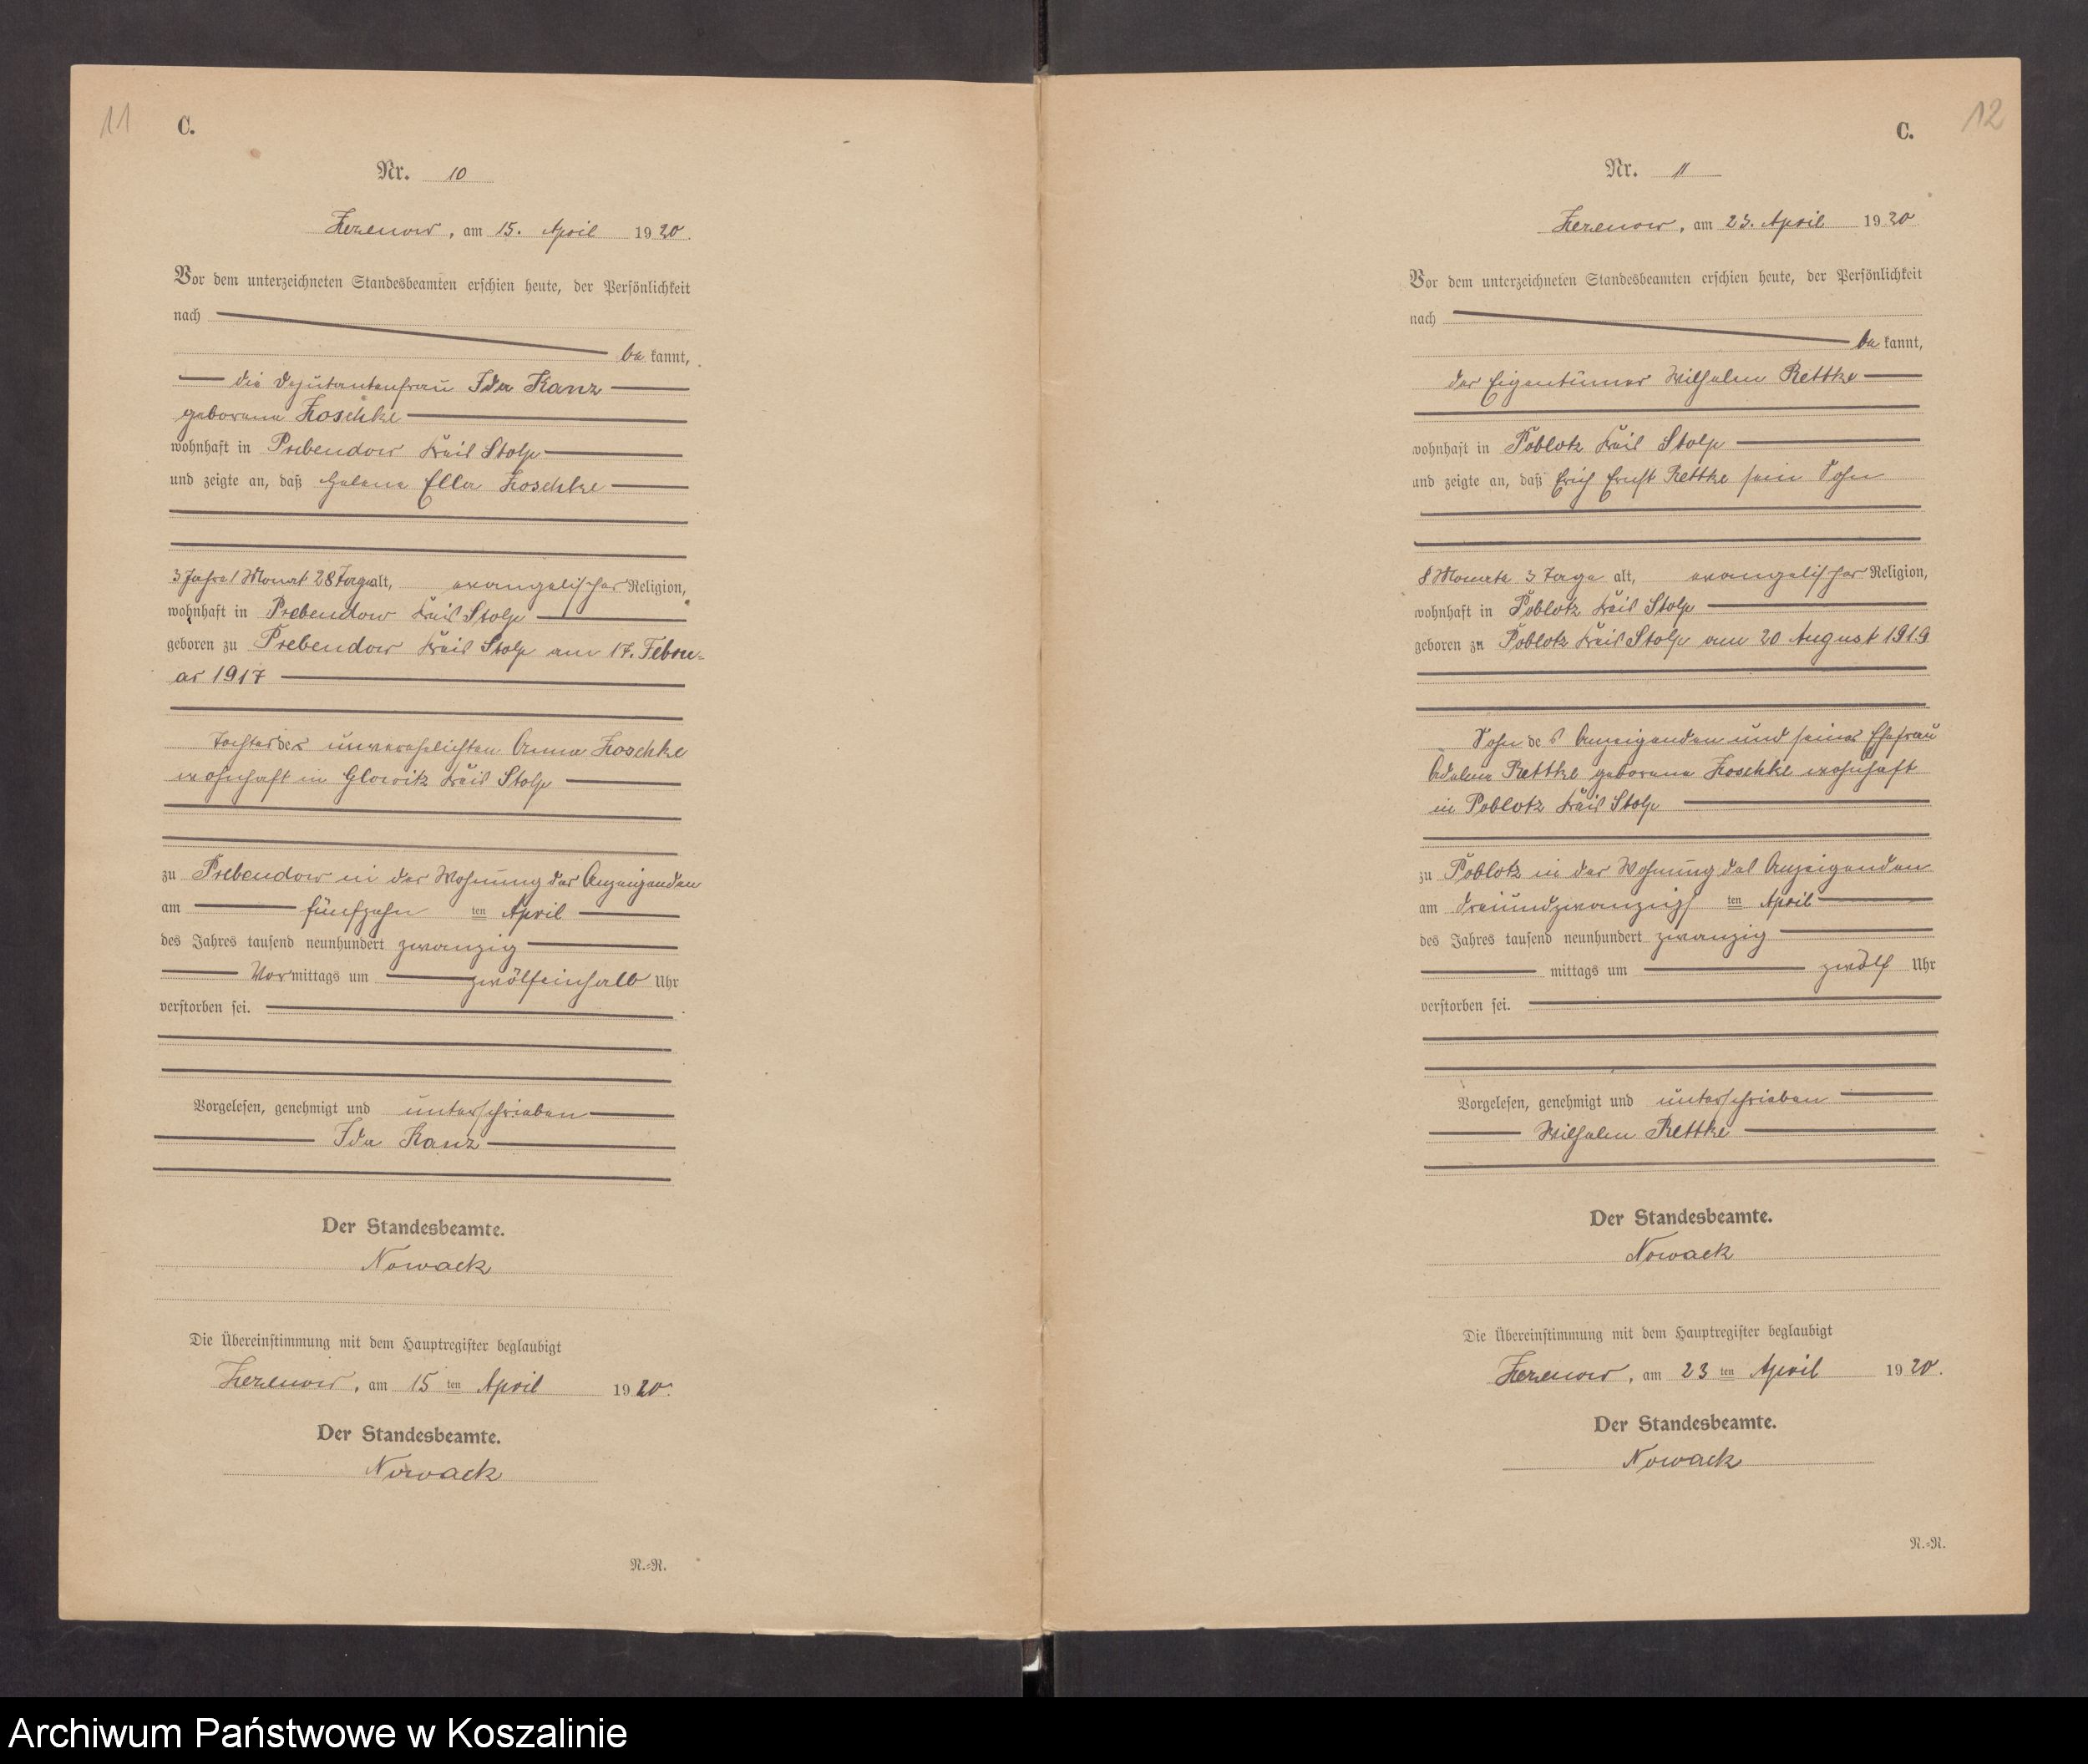 11
C.
Nr. 10
Zezenow, am 15. April 1920.
Vor dem unterzeichneten Standesbeamten erschien heute, der Persönlichkeit
nach
be kannt,
die Deputantenfrau Ida Kanz
geborene Koschke
wohnhaft in Prebendow Kreis Stolp
und zeigte an, daß Helene Ella Koschke
3 Jahre 1 Monat 28 Tage alt, evangelischer Religion,
wohnhaft in Prebendow Kreis Stolp
geboren zu Prebendow Kreis Stolp am 17. Febru-
ar 1917
Tochter der unverehelichten Anna Koschke
wohnhaft in Glowitz Kreis Stolp
zu Prebendow in der Wohnung der Anzeigenden
am fünfzehn ten April
des Jahres tausend neunhundert zwanzig
Vormittags um zwölfeinhalb Uhr
verstorben sei.
Vorgelesen, genehmigt und unterschrieben
Ida Kanz
Der Standesbeamte.
Nowack
Die Übereinstimmung mit dem Hauptregister beglaubigt
Zezenow, am 15 ten April 1920.
Der Standesbeamte.
Nowack
N.-R.
12
C.
Nr. 11
Zezenow, am 23. April 1920
Vor dem unterzeichneten Standesbeamten erschien heute, der Persönlichkeit
nach
be kannt,
der Eigentümer Wilhelm Rettke
wohnhaft in Poblotz Kreis Stolp
und zeigte an, daß Erich Ernst Rettke sein Sohn
8 Monate 3 Tage alt, evangelischer Religion,
wohnhaft in Poblotz Kreis Stolp
geboren zu Poblotz Kreis Stolp am 20 August 1919
Sohn des Anzeigenden und seiner Ehefrau
Adeline Rettke geborene Koschke wohnhaft
in Poblotz Kreis Stolp
zu Poblotz in der Wohnung des Anzeigenden
am dreiundzwanzigs ten April
des Jahres tausend neunhundert zwanzig
mittags um zwölf Uhr
verstorben sei.
Vorgelesen, genehmigt und unterschrieben
Wilhelm Rettke
Der Standesbeamte.
Nowack
Die Übereinstimmung mit dem Hauptregister beglaubigt
Zezenow, am 23 ten April 1920.
Der Standesbeamte.
Nowack
N.-R.
Archiwum Państwowe w Koszalinie